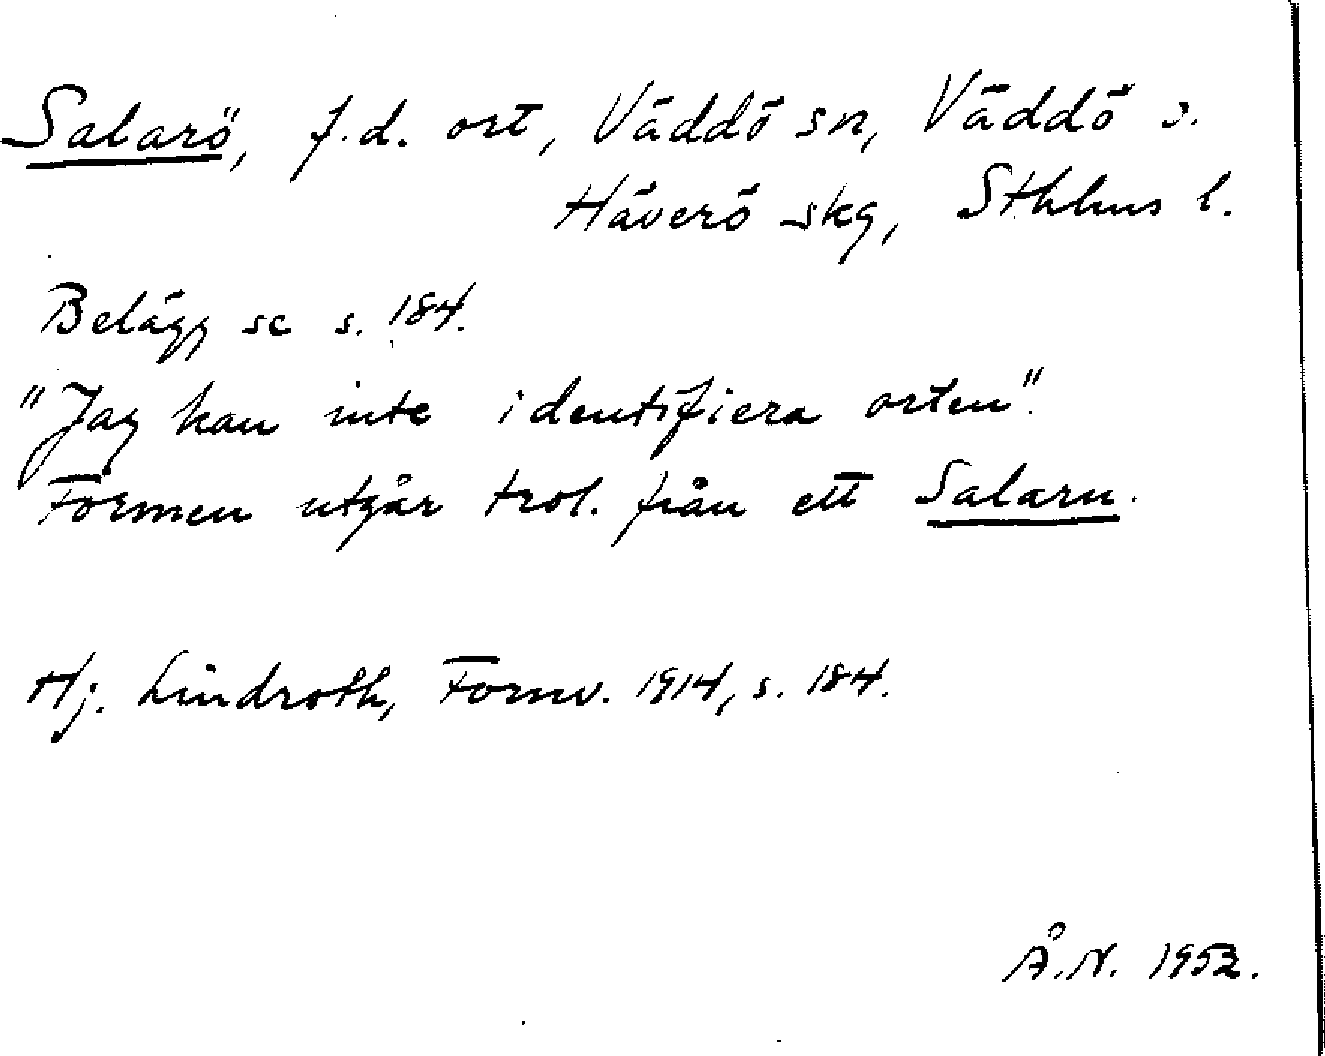 Salarö, f.d. ort, Väddö sn, Väddö o.
Häverö skg, Sthlms l.
Belägg se s. 184.
"Jag kan inte identifiera orten".
Formen utgår trol. från ett Salarn.
Hj. Lindroth, Fornv. 1914, s. 184.
Å.N. 1952.